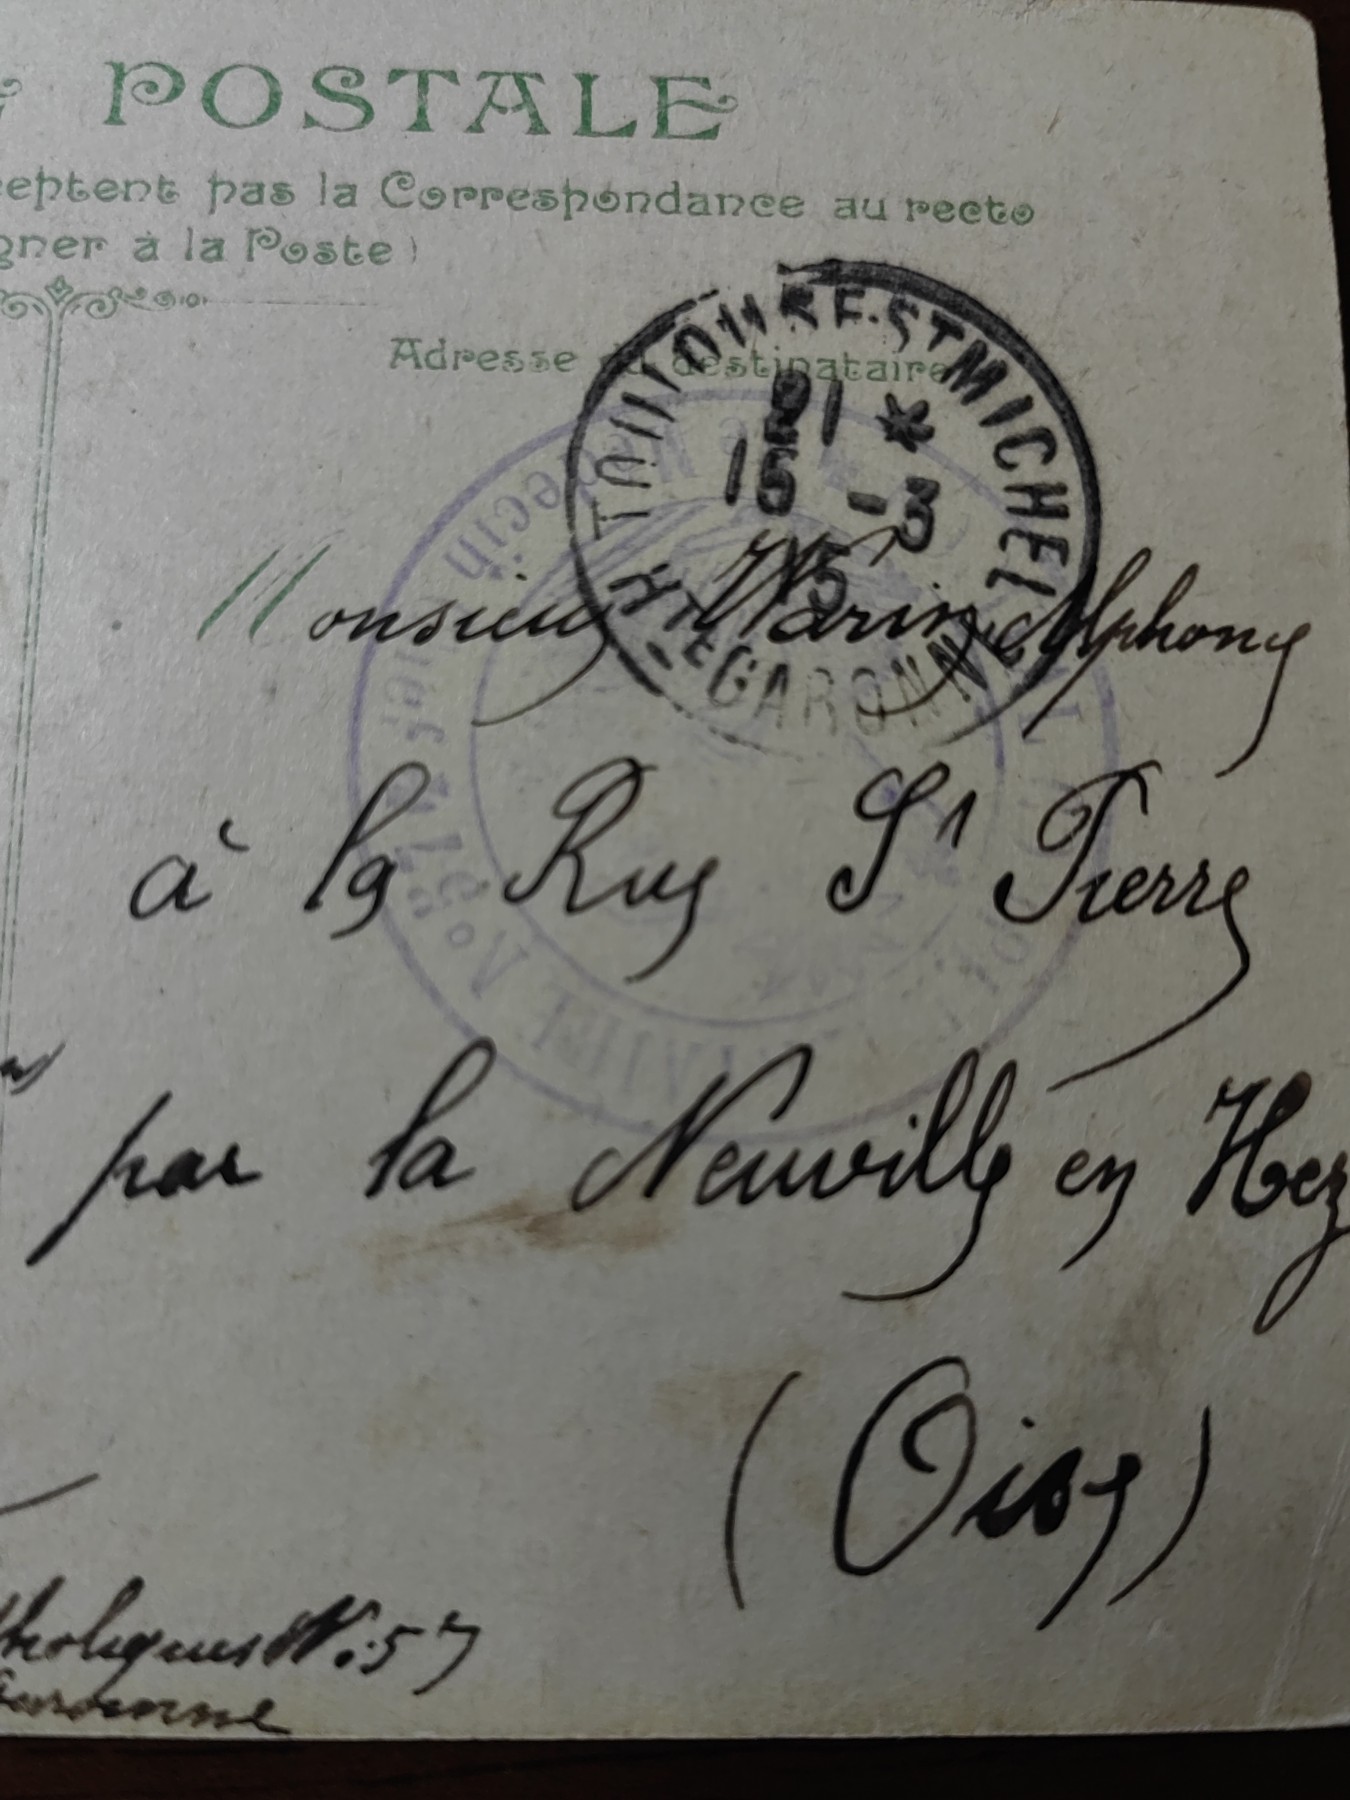 POSTALE
ceptent pas la Correspondance au recto
gner à la Poste)
Adresse du destinataire
TOULOUSE-ST MICHEL
21 *
15 -3
15
HTE GARONNE
Le Médecin Chef
N° 57
Monsieur Warin Alphons
à la Rue St Pierre
par la Neuville en Hez
(Oise)
tholiques N° 57
Garonne